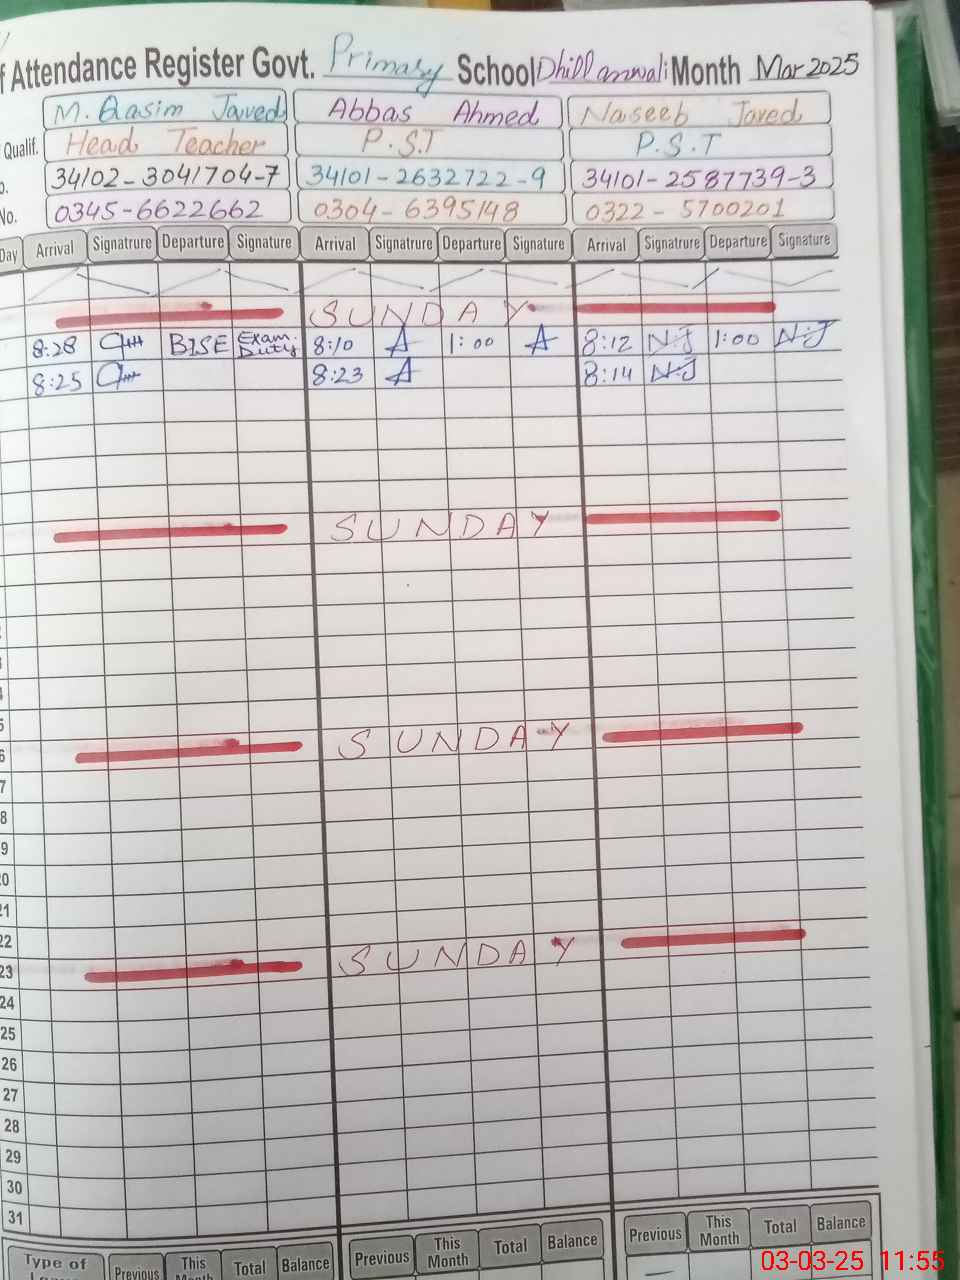 Attendance Register Govt. Primary School Dhillanwali Month Mar 2025
M. Qasim Javed Abbas Ahmed Naseeb Javed
Qualif. Head Teacher P.S.T P.S.T
34102-3041704-7 34101-2632722-9 34101-2587739-3
No. 0345-6622662 0304-6395148 0322-5700201
Day Arrival Signatrure Departure Signature Arrival Signatrure Departure Signature Arrival Signatrure Departure Signature
SUNDAY
8:28 BISE Exam. Duty 8:10 A 1:00 A 8:12 N.J 1:00 N.J
8:25 8:23 A 8:14 N.J
SUNDAY
SUNDAY
6
7
8
9
20
21
22
23 SUNDAY
24
25
26
27
28
29
30
31
Type of Previous This Month Total Balance Previous This Month Total Balance Previous This Month Total Balance
03-03-25 11:55